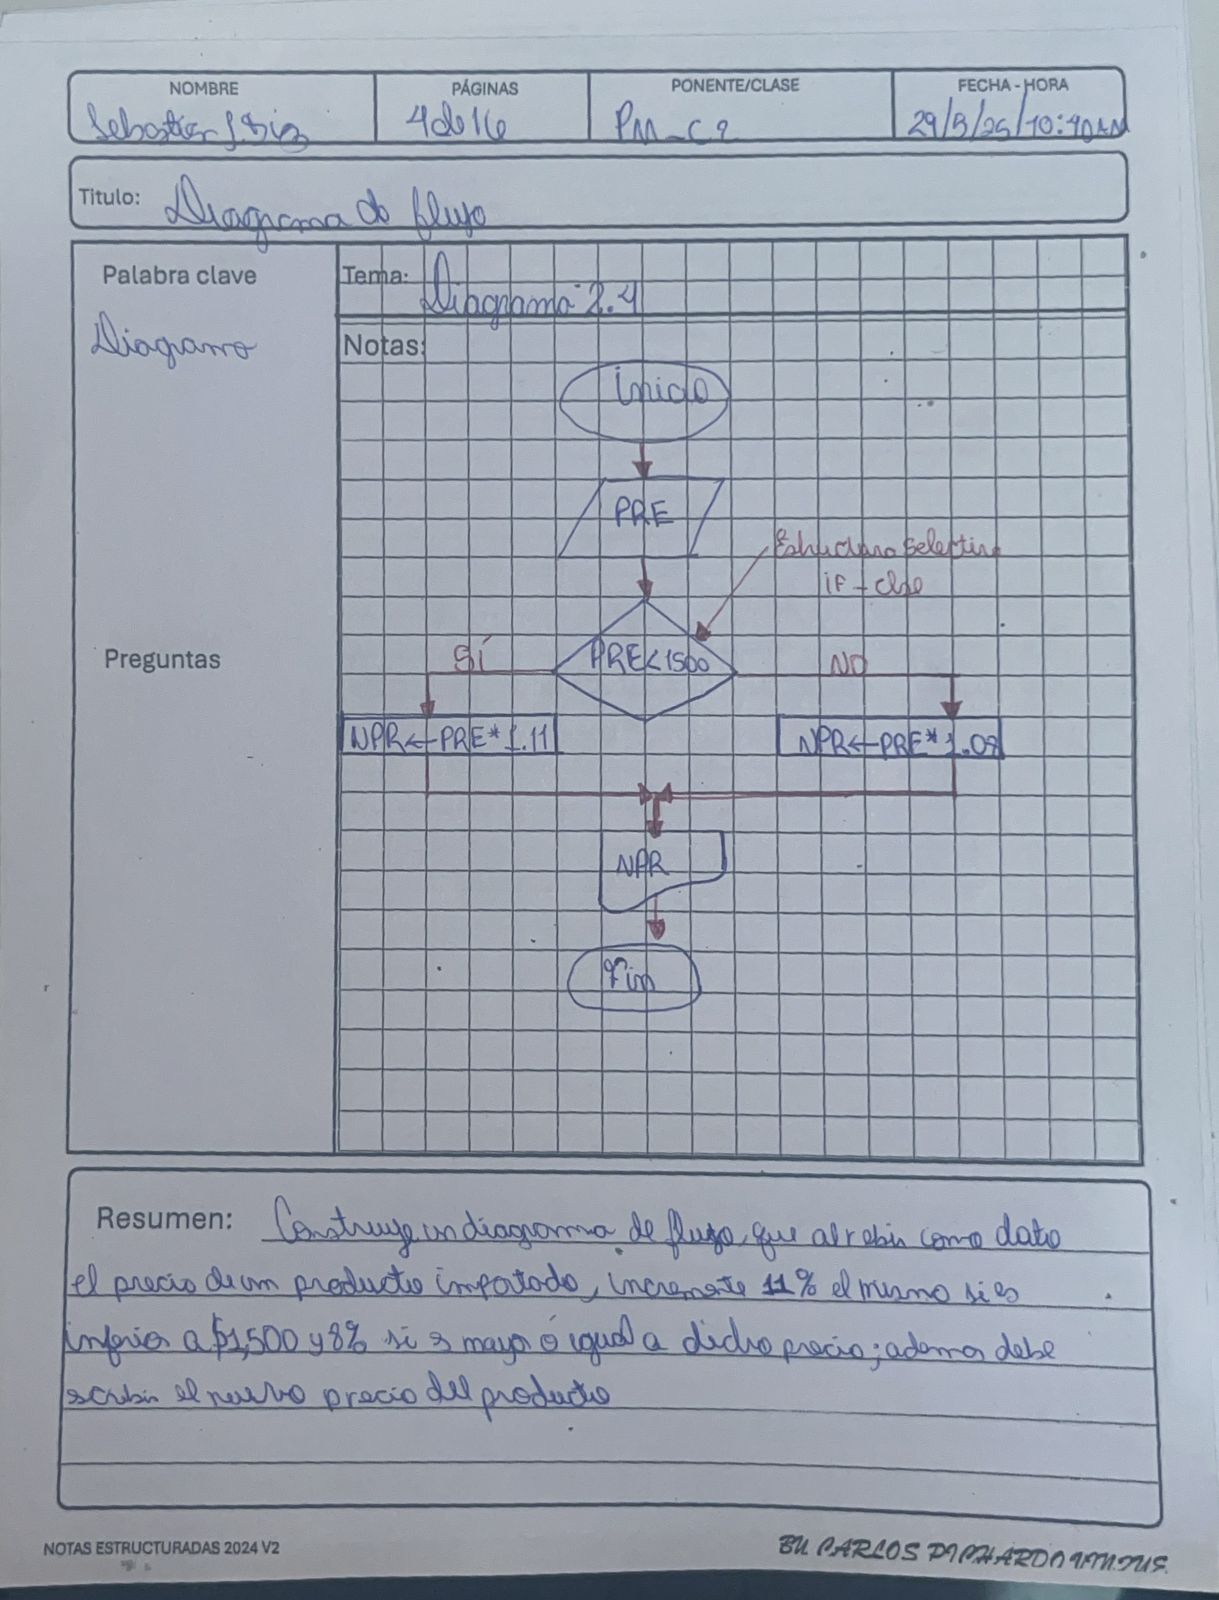 NOMBRE
PÁGINAS
PONENTE/CLASE
FECHA - HORA
4 de 16
Titulo: Diagrama de flujo
Palabra clave
Diagrama
Tema: Diagrama 2.4
Notas:
Inicio
PRE
Estructura Selectiva
if - else
PRE<1500
SÍ
NO
NPR←PRE*1.11
NPR←PRE*1.08
NPR
Fin
Preguntas
Resumen: Construye un diagrama de flujo, que al rebir como dato
el precio de un producto importado, incremente 11% el mismo si es
inferior a $1,500 y 8% si es mayor o igual a dicho precio; ademas debe
scribir el nuevo precio del producto
NOTAS ESTRUCTURADAS 2024 V2
BY CARLOS PICHARDO